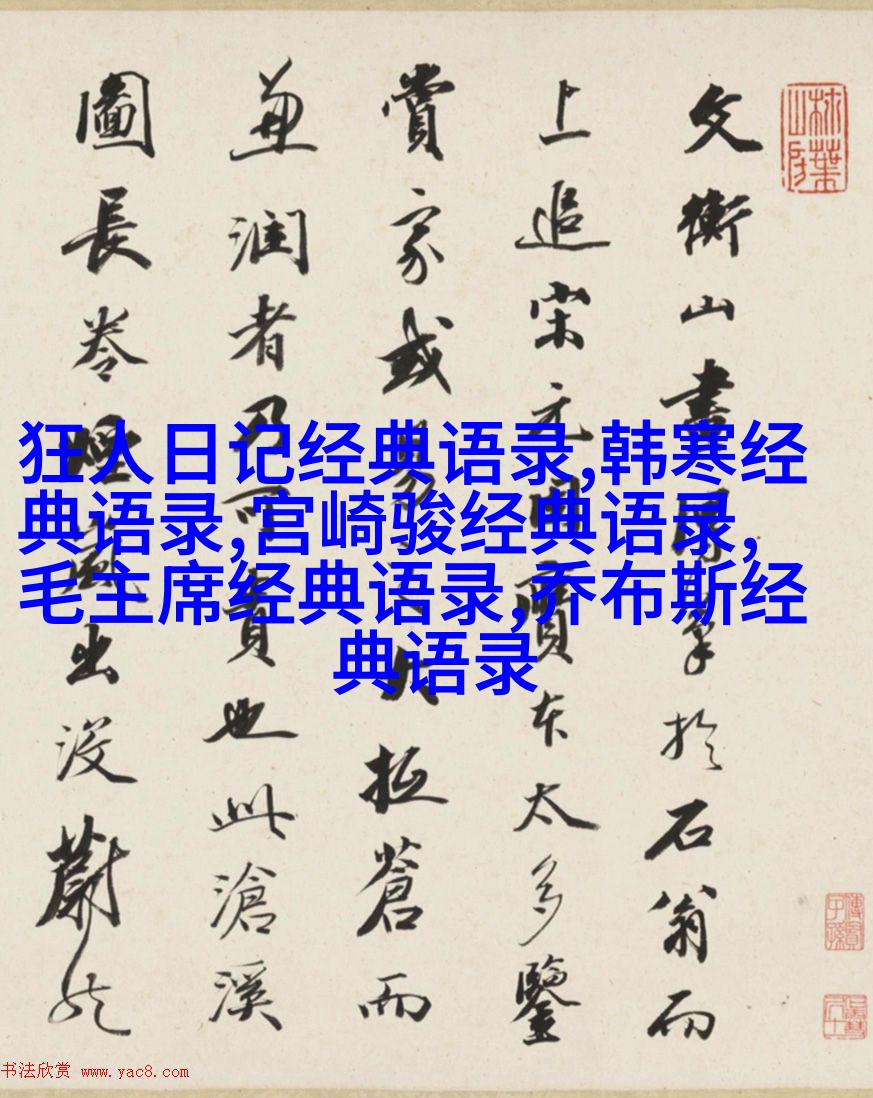 文衡山畫筆於石翁而
上追宋元因贋本太多鑒
賞家或易蒼而
兼润者乃可貴也此滄溪
圖長卷煙嵐出没蔚然
狂人日记经典语录,韩寒经
典语录,宫崎骏经典语录,
毛主席经典语录,乔布斯经
典语录
书法欣赏 www.yac8.com